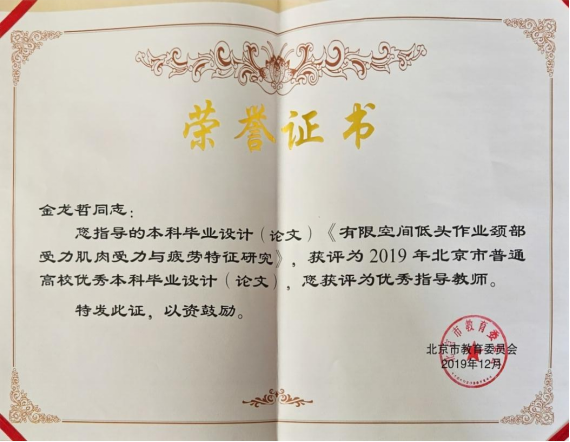 荣誉证书
金龙哲同志：
您指导的本科毕业设计（论文）《有限空间低头作业颈部
受力肌肉受力与疲劳特征研究》，获评为 2019 年北京市普通
高校优秀本科毕业设计（论文），您获评为优秀指导教师。
特发此证，以资鼓励。
北京市教育委员会
2019年12月